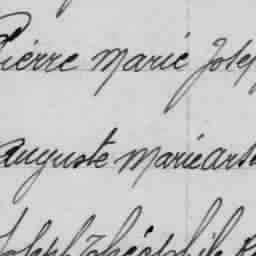 Pierre Marie Josep
Auguste Marie Arse
Joseph Théophile